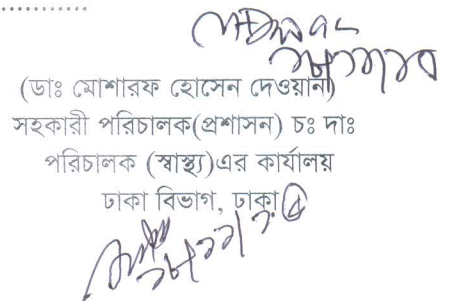 (ডাঃ মোশারফ হোসেন দেওয়ান)
সহকারী পরিচালক(প্রশাসন) চঃ দাঃ
পরিচালক (স্বাস্থ্য)এর কার্যালয়
ঢাকা বিভাগ, ঢাকা